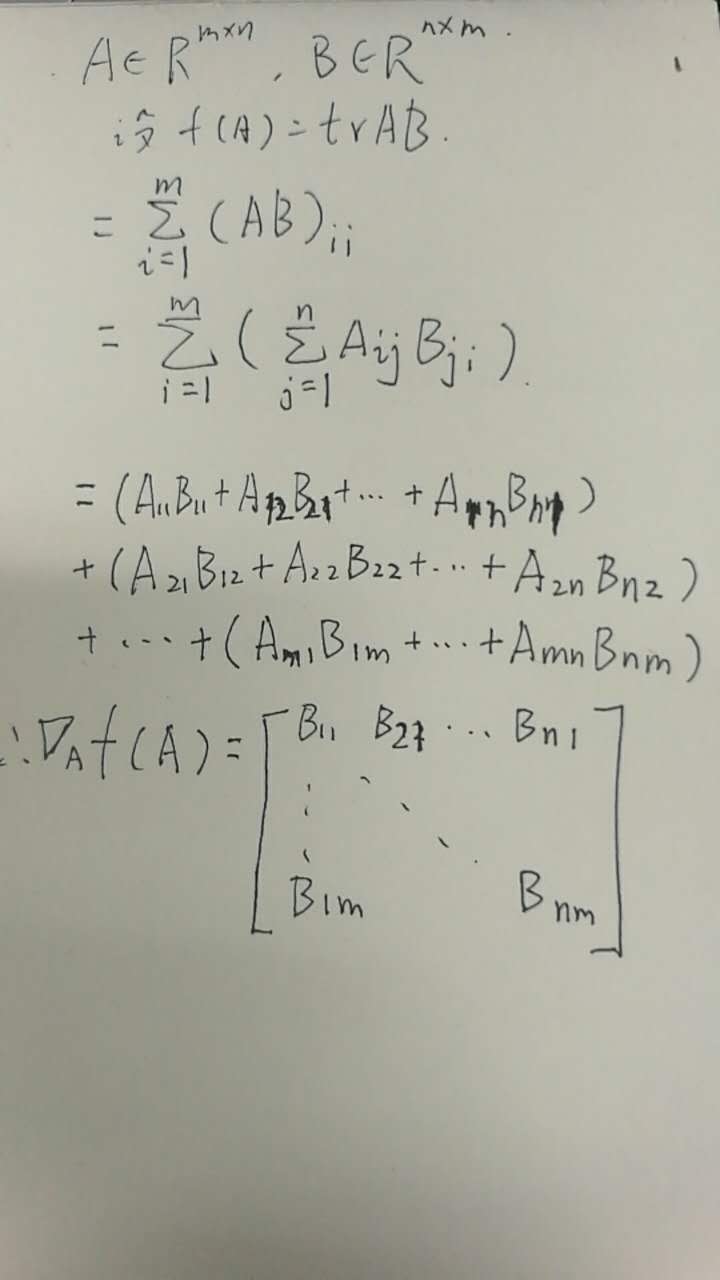 A∈R^{m×n}, B∈R^{n×m}.
设 f(A)=trAB.
= \sum_{i=1}^{m} (AB)_{ii}
= \sum_{i=1}^{m} ( \sum_{j=1}^{n} A_{ij} B_{ji} ).
= (A_{11}B_{11}+A_{12}B_{21}+⋯+A_{1n}B_{n1})
+(A_{21}B_{12}+A_{22}B_{22}+⋯+A_{2n}B_{n2})
+⋯+(A_{m1}B_{1m}+⋯+A_{mn}B_{nm})
∴∇_A f(A)=[ B_{11} B_{21} ⋯ B_{n1}
⋮ ⋱
B_{1m} B_{nm} ]